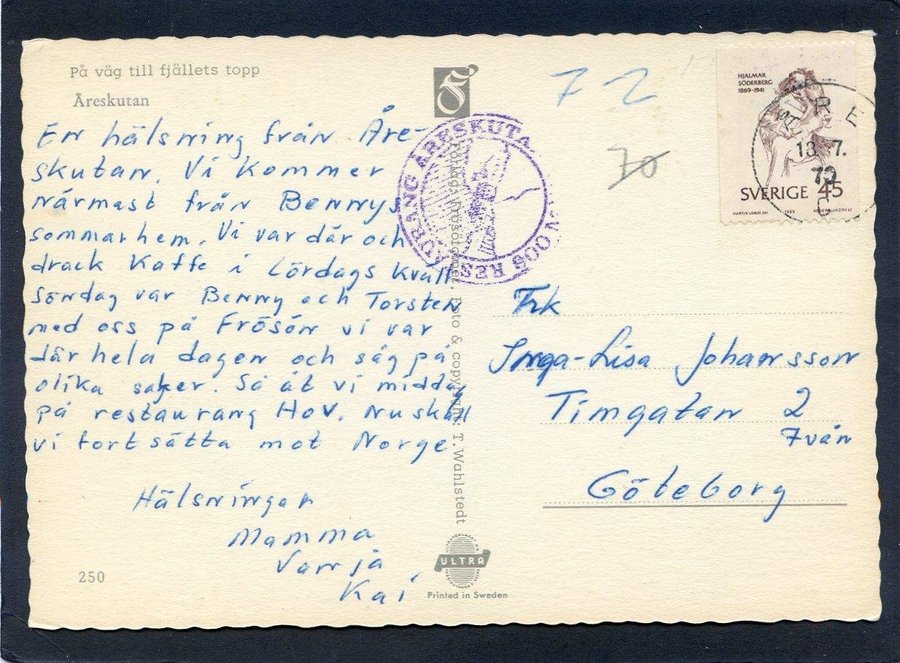 På väg till fjällets topp
Åreskutan
En hälsning från Åre-
skutan. Vi kommer
närmast från Bennys
sommarhem. Vi var där och
drack Kaffe i Lördags kväll
Söndag var Benny och Torsten
med oss på Frösön vi var
där hela dagen och såg på
olika saker. Så åt vi middag
på restaurang Hov. Nu skall
vi fortsätta mot Norge
Hälsningar
Mamma
Vanja
Kai
250
RESTAURANG ÅRESKUTAN
Foto & copyright: T. Wahlstedt
ULTRA
Printed in Sweden
72
70
HJALMAR
SÖDERBERG
1869-1941
SVERIGE 45
1969
ÅRE
13.7.
70
Frk
Inga-Lisa Johansson
Timgatan 2
7vån
Göteborg